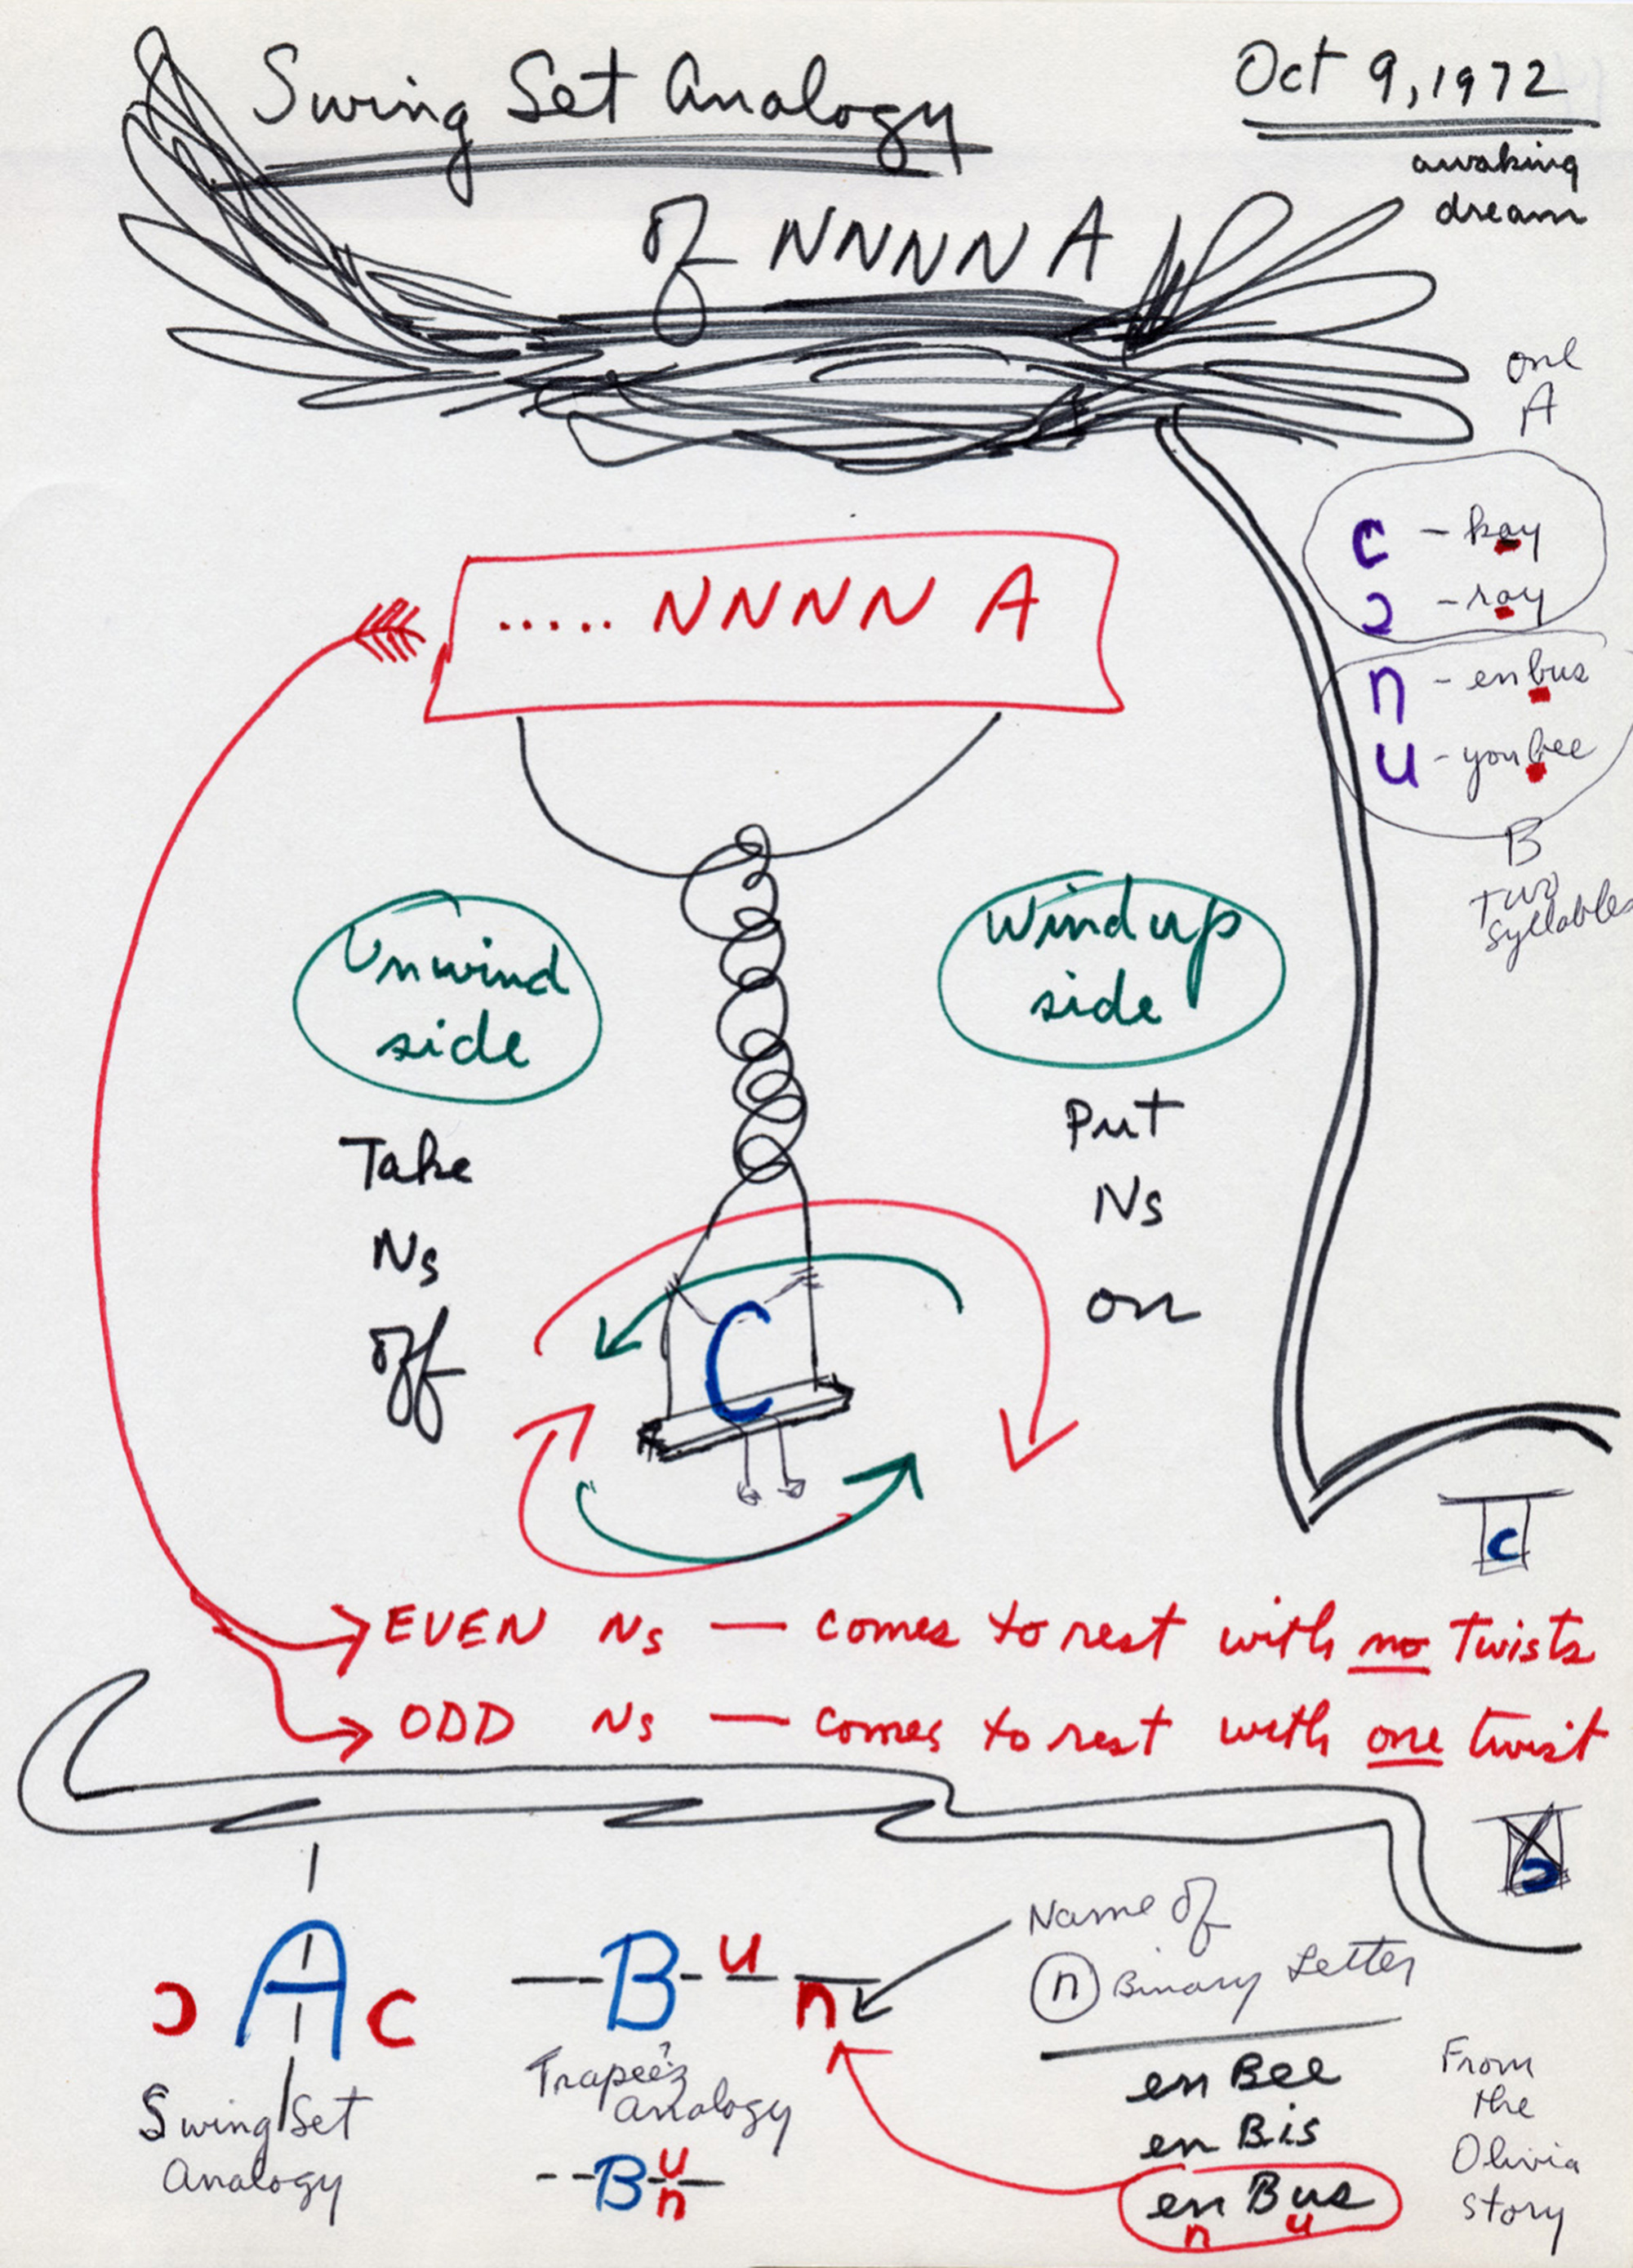 Swing Set Analogy
of NNNN A
Oct 9, 1972
awaking
dream
one
A
c - kay
ɔ - ray
n - enbus
u - youbee
B
Two
Syllables
..... NNNN A
Unwind
side
Take
Ns
off
Windup
side
Put
Ns
on
C
c
EVEN Ns — comes to rest with no twists
ODD Ns — comes to rest with one twist
ɔ
ɔ A c
Swing Set
Analogy
B u n
Trapeez
analogy
B u n
Name of
n Binary Letter
en Bee
en Bis
en Bus
n u
From
the
Olivia
story